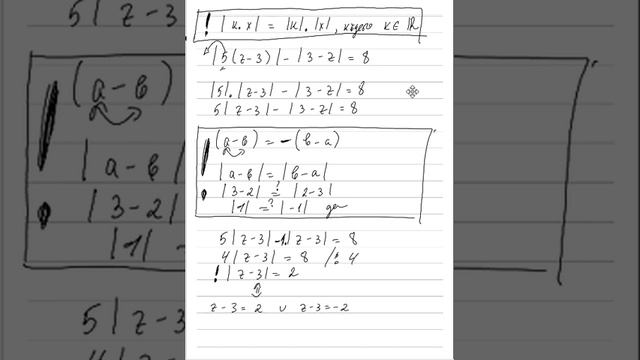 ! |k.x| = |k|.|x|, където k∈ℝ
|5(z-3)| - |3-z| = 8
|5|.|z-3| - |3-z| = 8
5|z-3| - |3-z| = 8
(a-b) = -(b-a)
! |a-b| = |b-a|
|3-2| =? |2-3|
|1| =? |-1| да
5|z-3| -1.|z-3| = 8
4|z-3| = 8 /:4
! |z-3| = 2
⇕
z-3=2 ∪ z-3=-2